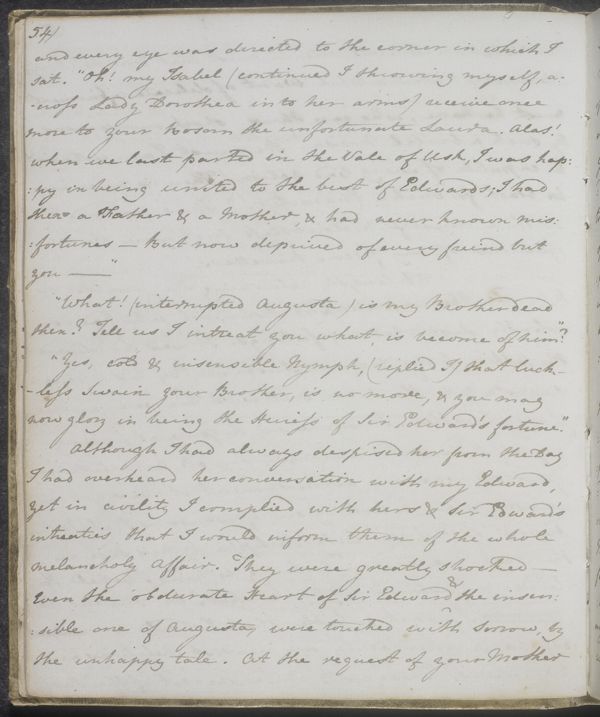 54/
and every eye was directed to the corner in which I
sat. "Oh! my Isabel (continued I throwing myself, a-
-cross Lady Dorothea into her arms) receive once
more to your bosom the unfortunate Laura. Alas!
when we last parted in the Vale of Usk, I was hap:
:py in being united to the best of Edwards; I had
then a Father & a Mother, & had never known mis:
:fortunes — But now deprived of every freind but
you —"
"What! (interrupted Augusta) is my Brother dead
then? Tell us I intreat you what is become of him"?
"Yes, cold & insensible Nymph, (replied I) that luck-
-less Swain your Brother, is no more, & you may
now glory in being the Heiress of Sir Edward's fortune."
Although I had always despised her from the Day
I had overheard her conversation with my Edward,
yet in civility I complied with hers & Sir Edward's
intreaties that I would inform them of the whole
melancholy Affair. They were greatly shocked —
Even the obdurate Heart of Sir Edward & the insen:
:sible one of Augusta, were touched with sorrow, by
the unhappy tale. At the request of your Mother